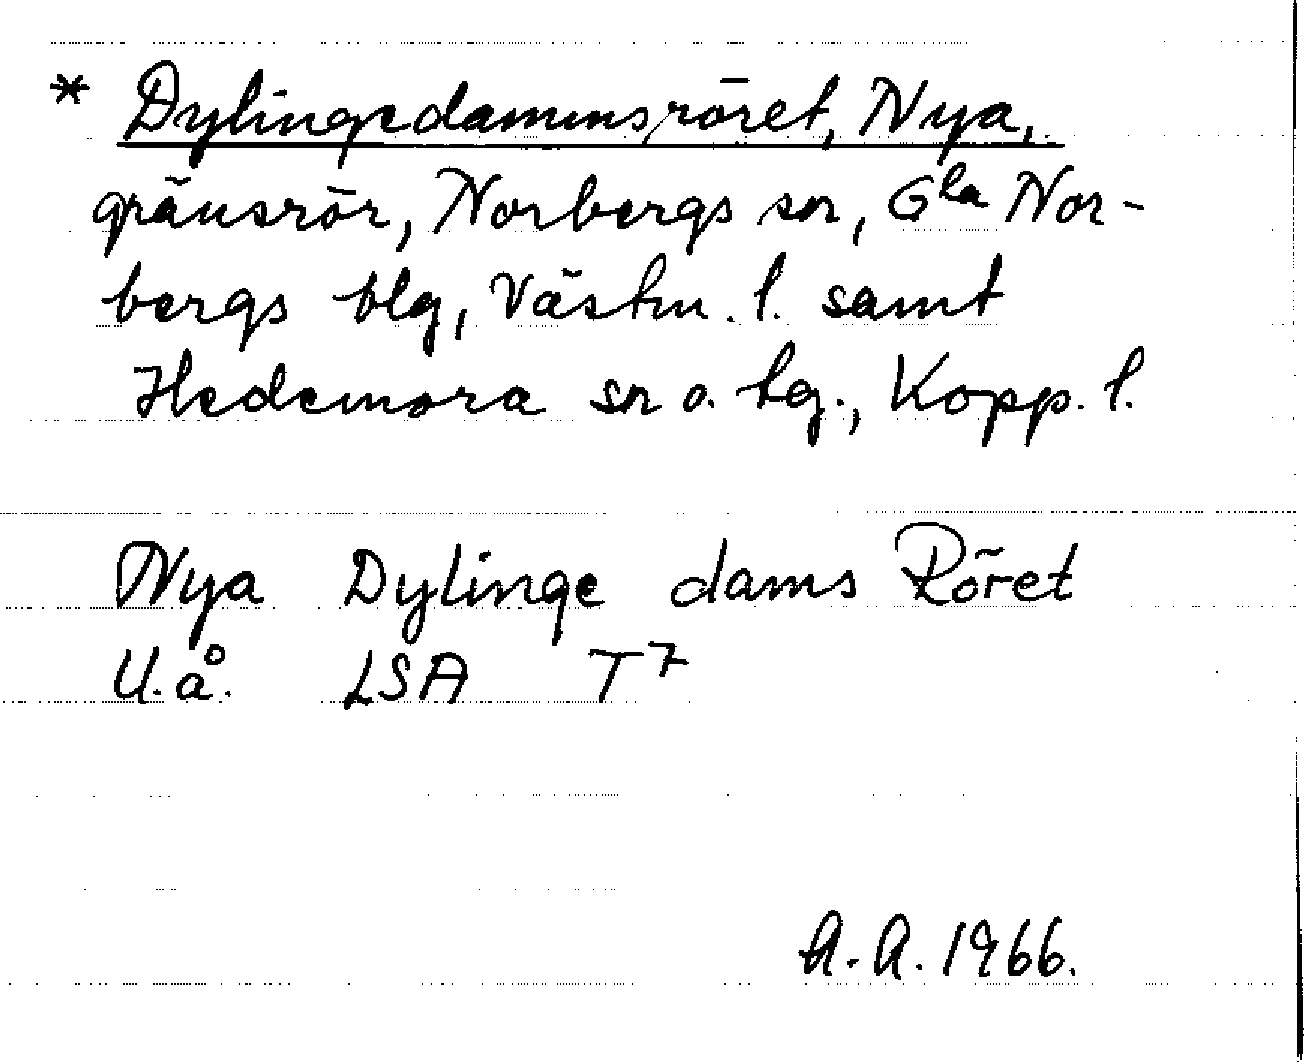 * Dylingedammsröret, Nya,
gränsrör, Norbergs sn, Gla Nor-
bergs blg, Västm. l. samt
Hedemora sn o. tg., Kopp. l.
Nya Dylinge dams Röret
U.å. LSA T7
A.A. 1966.